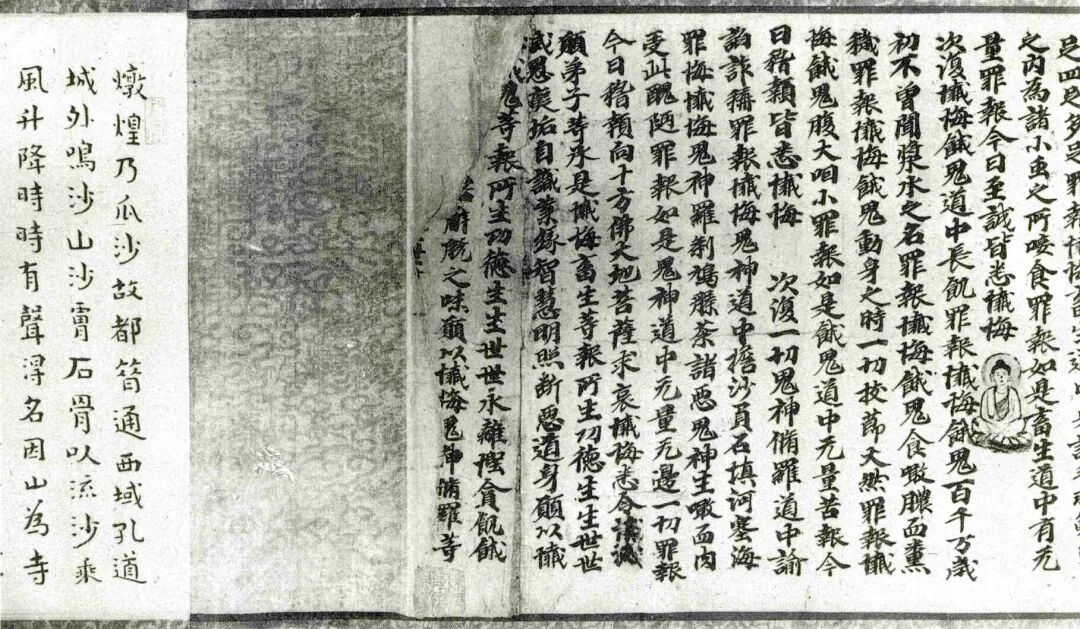 足四足多足罪報懺悔畜生道
之內為諸小虫之所唼食罪報如是畜生道中有无
量罪報今日至誠皆悉懺悔
次復懺悔餓鬼道中長飢罪報懺悔餓鬼百千万歲
初不曾聞漿水之名罪報懺悔餓鬼食噉膿血糞
穢罪報懺悔餓鬼動身之時一切枝節火然罪報懺
悔餓鬼腹大咽小罪報如是餓鬼道中无量苦報今
日稽顙皆悉懺悔 次復一切鬼神脩羅道中諭
諂詐稱罪報懺悔鬼神道中擔沙負石填河塞海
罪悔懺悔鬼神羅剎鳩槃荼諸惡鬼神生噉血肉
受此醜陋罪報如是鬼神道中无量无邊一切罪報
今日稽顙向十方佛大地菩薩求哀懺悔悉令滅
願弟子等承是懺悔畜生等報所生功德生生世世
滅愚癡垢自識業緣智慧明照斷惡道身願以懺
鬼等報所生功德生生世世永離慳貪飢餓
之味願以懺悔鬼神脩羅等
燉煌乃瓜沙故都通西域孔道
城外鳴沙山沙膚石骨以流沙乘
風升降時時有聲得名因山為寺